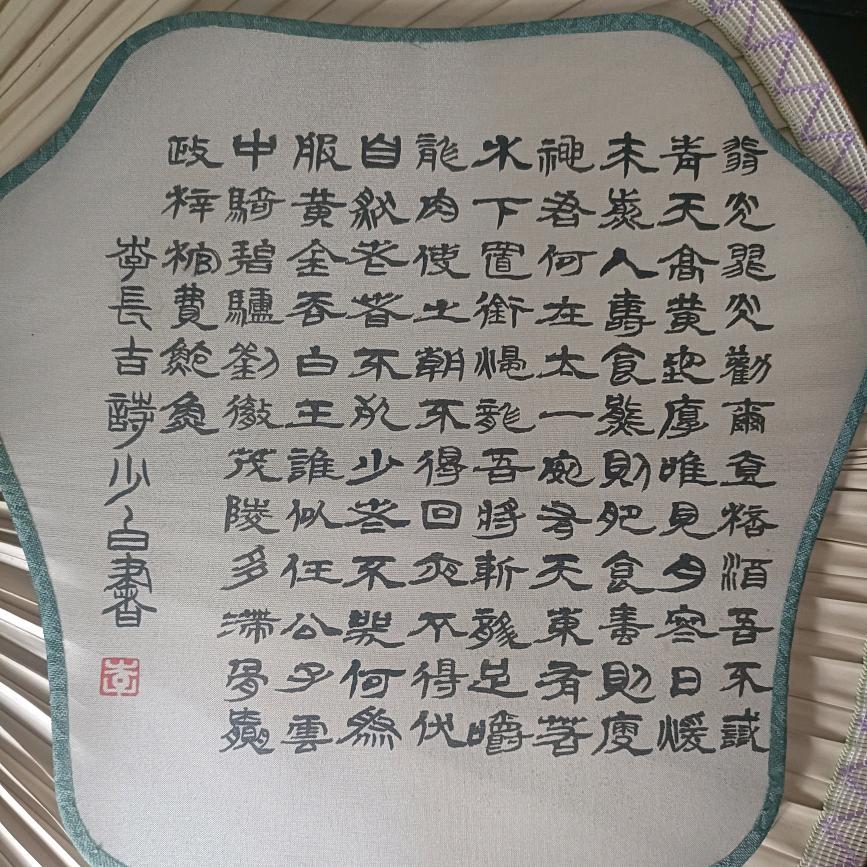 飛光飛光勸爾壹桮酒吾不識
青天高黃地厚唯見月寒日煖
來煎人壽食熊則肥食蛙則瘦
神君何在太一安有天東有若
木下置銜燭龍吾將斬龍足嚼
龍肉使之朝不得回夜不得伏
自然老者不死少者不哭何為
服黃金吞白玉誰似任公子雲
中騎碧驢劉徹茂陵多滯骨嬴
政梓棺費鮑魚
李長吉詩少白書
李